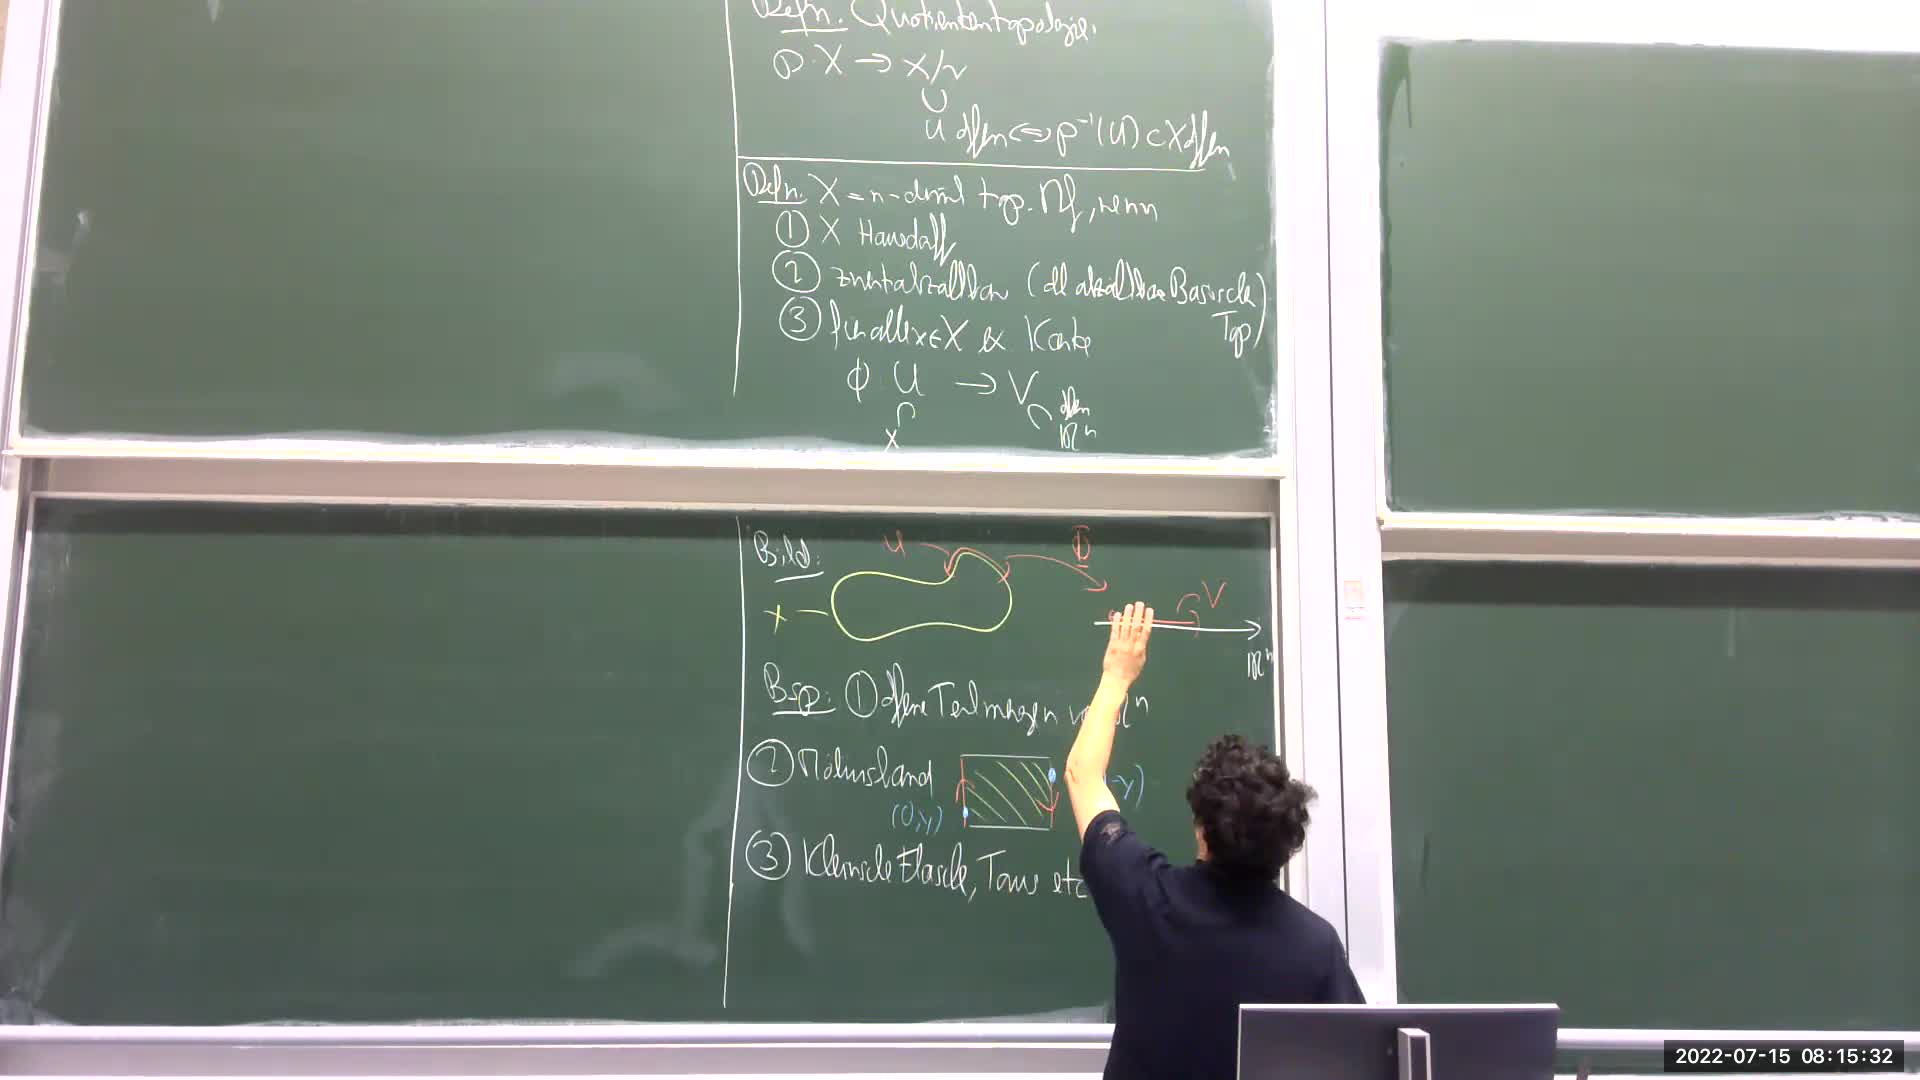 Defn. Quotiententopologie.
p: X → X/~
∪
U offen ⇔ p⁻¹(U) ⊂ X offen
Defn. X = n-diml top. Mf, wenn
① X Hausdorff
② zweitabzählbar (d.h. abzählbare Basis der Top)
③ für alle x ∈ X ex Karte
ϕ: U → V
offen
x
ℝⁿ
Bild:
U
Φ
X
V
ℝⁿ
Bsp: ① offene Teilmengen von ℝⁿ
② Möbiusband
(0,y)
-y)
③ Kleinsche Flasche, Torus etc
2022-07-15 08:15:32